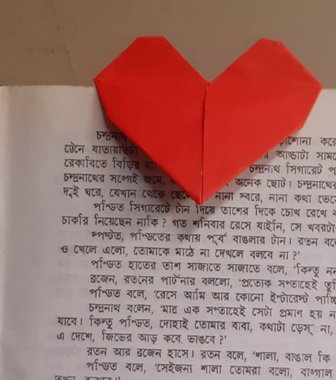 চন্দ্রনাথ
ট্রেনে যাতায়াত
রেকাবিতে বিড়ির চন্দ্রনাথ সিগারেট
চন্দ্রনাথের সঙ্গেই জমে, অনেক ছোট। চন্দ্রনাথের
দুই ঘরে, যেখান থেকে নানা স্বরে, নানা কথা ভেসে
পণ্ডিত সিগারেটে টান দিয়ে তাশের দিকে চোখ রেখে
চাকরি নিয়েছেন নাকি? গত শনিবার রেসে যাইনি, সে খবরটা
স্পষ্টত, পণ্ডিতের কথায় পূর্ব বাঙলার টান। রতন বলে
ও খেলে এলো, তোমাকে মাঠে না দেখলে বলবে না?'
পণ্ডিত হাতের তাশ সাজাতে সাজাতে বলে, 'কিন্তু
ব্রজেন, রতনের পার্টনার বললো, 'প্রত্যেক সপ্তাহেই
পণ্ডিত বলে, 'রেসে আমি আর কোনো ইন্টারেস্ট
চন্দ্রনাথ বলেন, 'মাত্র এক সপ্তাহেই সেটা প্রমাণ হয়
যাবে। কিন্তু পণ্ডিত, দোহাই তোমার বাবা, কথাটা না
এ দেশে, জিভের আড় কবে ভাঙবে?'
রতন আর ব্রজেন হাসে। রতন বলে, 'শালা, বাঙাল কি
পণ্ডিত বলে, 'সেইজন্য শালা তোমরা বলো, বাঙ্গাল